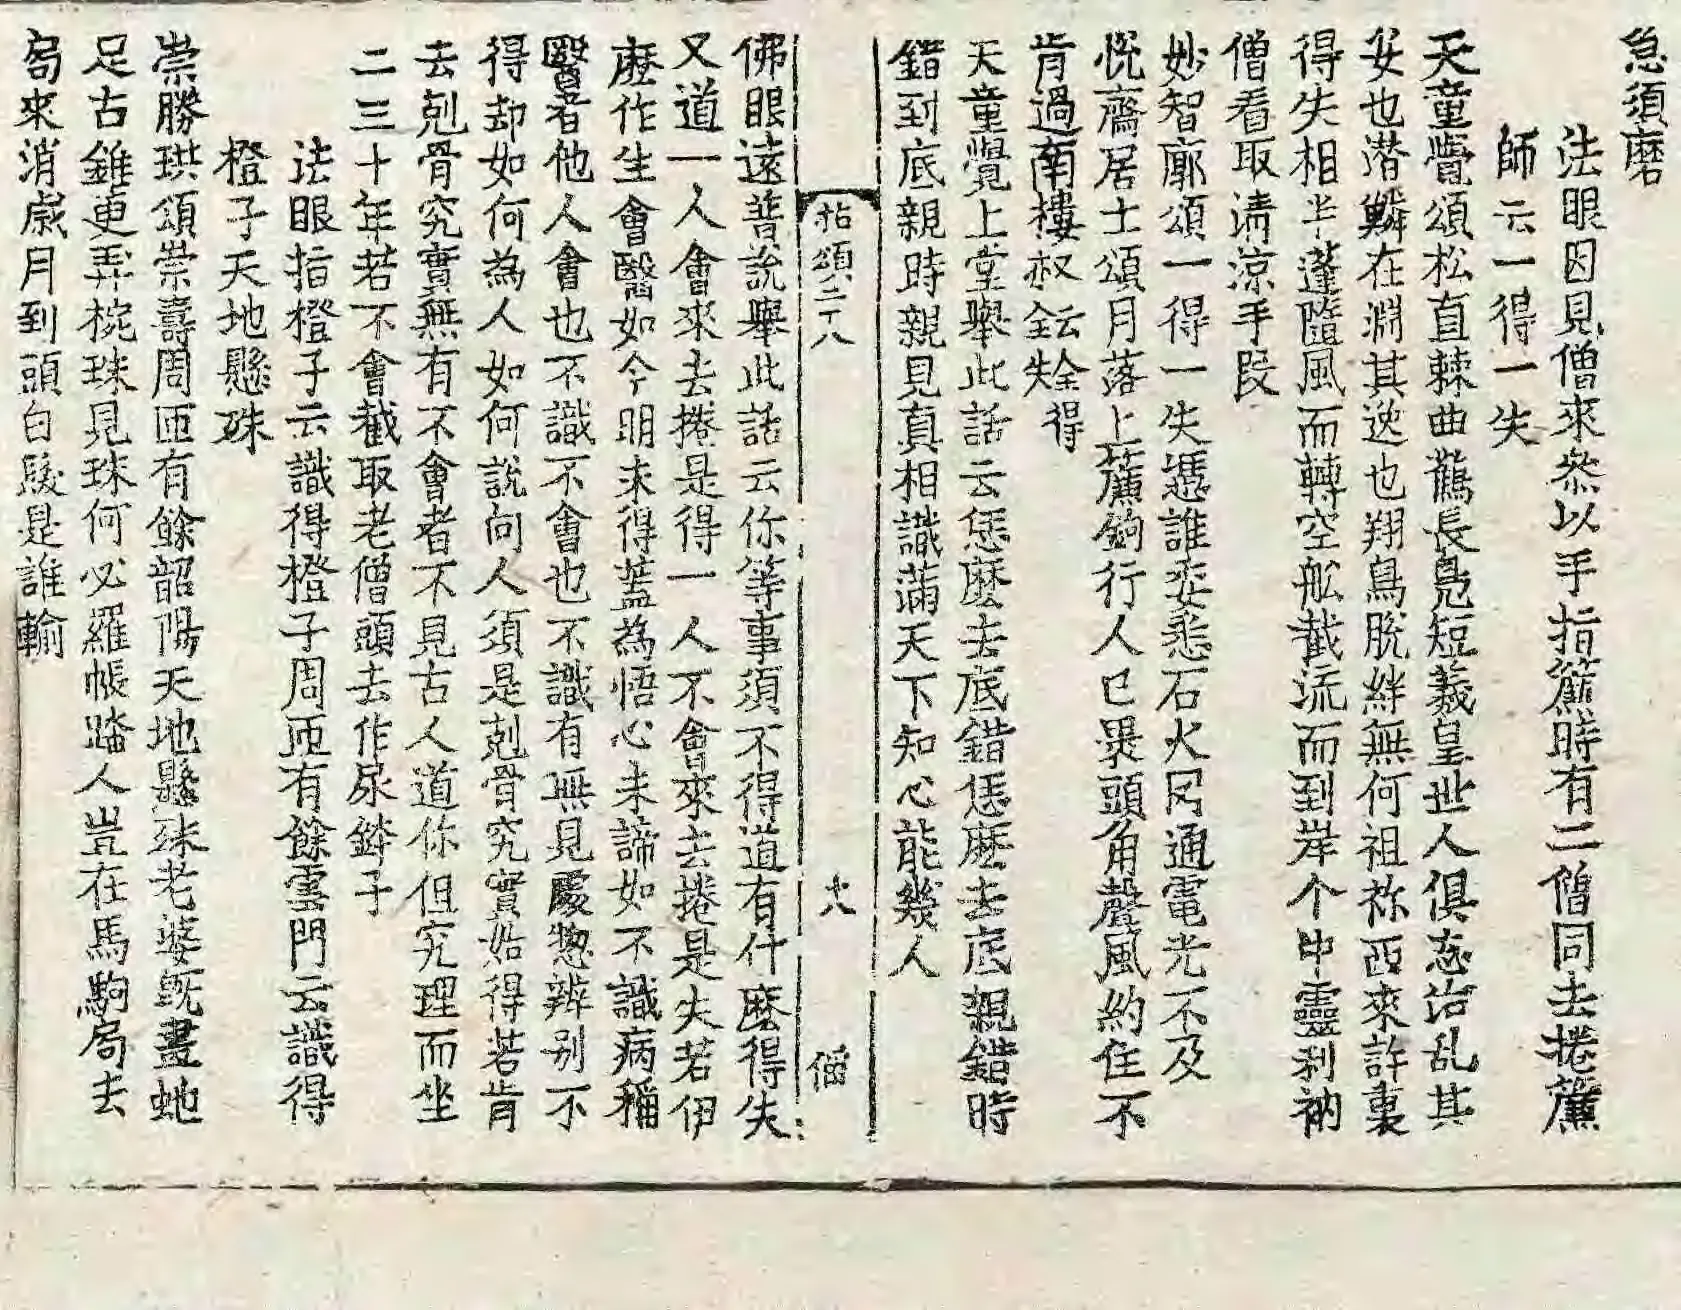 急須磨
法眼因見僧來叅以手指簾時有二僧同去捲簾
師云一得一失
天童覺頌松直棘曲鶴長鳧短羲皇世人俱忘治乱其
安也潜鱗在淵其逸也翔鳥脫絆無何祖祢西來許裏
得失相半蓬隨風而轉空舡截流而到岸个中靈利衲
僧看取淸涼手段
妙智廓頌一得一失憑誰委悉石火罔通電光不及
悅齋居士頌月落上簾鉤行人已畏頭角聲風約住不
肯過南樓叔云全失全得
天童覺上堂舉此話云恁麽去底錯恁麽去底親錯時
錯到底親時親見真相識滿天下知心能幾人
拈頌二十八
十八
佛眼遠普說舉此話云你等事須不得道有什麽得失
又道一人會來去捲是得一人不會來去捲是失若伊
麽作生會醫如今明未得蓋為悟心未諦如不識病稱
醫者他人會也不識不會也不識有無見處惣辨别不
得却如何為人如何說向人須是剋骨究實始得若肯
去剋骨究實無有不會者不見古人道你但究理而坐
二三十年若不會截取老僧頭去作尿鉢子
法眼指橙子云識得橙子周匝有餘雲門云識得
橙子天地懸殊
崇勝珙頌崇壽周匝有餘韶陽天地懸殊老婆旣畫虵
足古錐更弄椀珠見珠何必羅帳踏人豈在馬駒局去
局來消歲月到頭白髮是誰輸